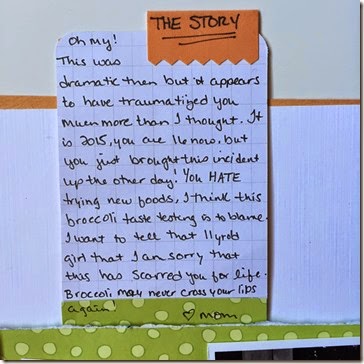 THE STORY
Oh My!
This was
dramatic then but it appears
to have traumatized you
much more than I thought. It
is 2015, you are 16 now, but
you just brought this incident
up the other day! You HATE
trying new foods, I think this
broccoli taste testing is to blame.
I want to tell that 11 yr old
girl that I am sorry that
this has scarred you for life.
Broccoli may never cross your lips
again!
♡ Mom